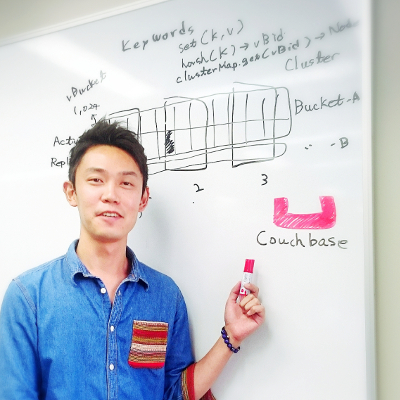 Keywords
set(k,v)
hash(k) → vBid
clusterMap.get(vBid) → Node
Cluster
vBucket
1,024
Bucket-A
Activ
Repl
.. -B
2
3
Couchbase